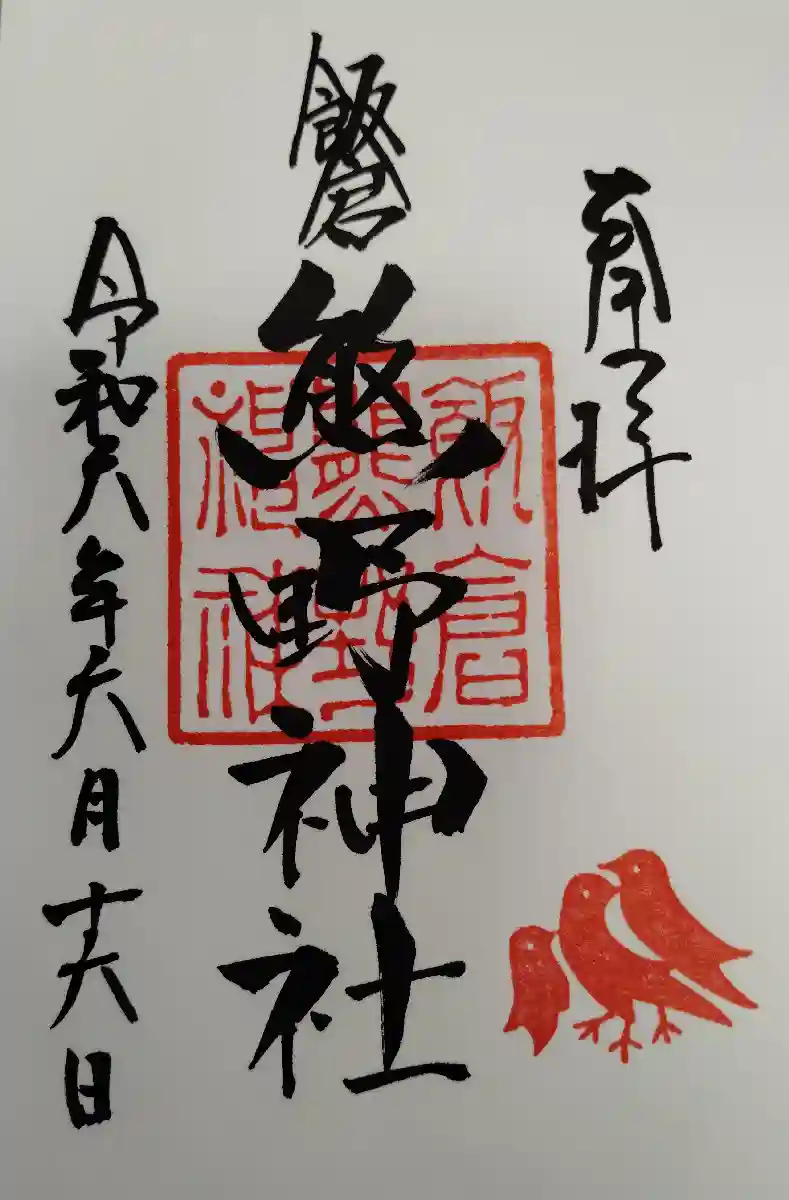 奉拝
飯倉
熊野神社
飯倉
熊野
神社
令和六年六月十六日